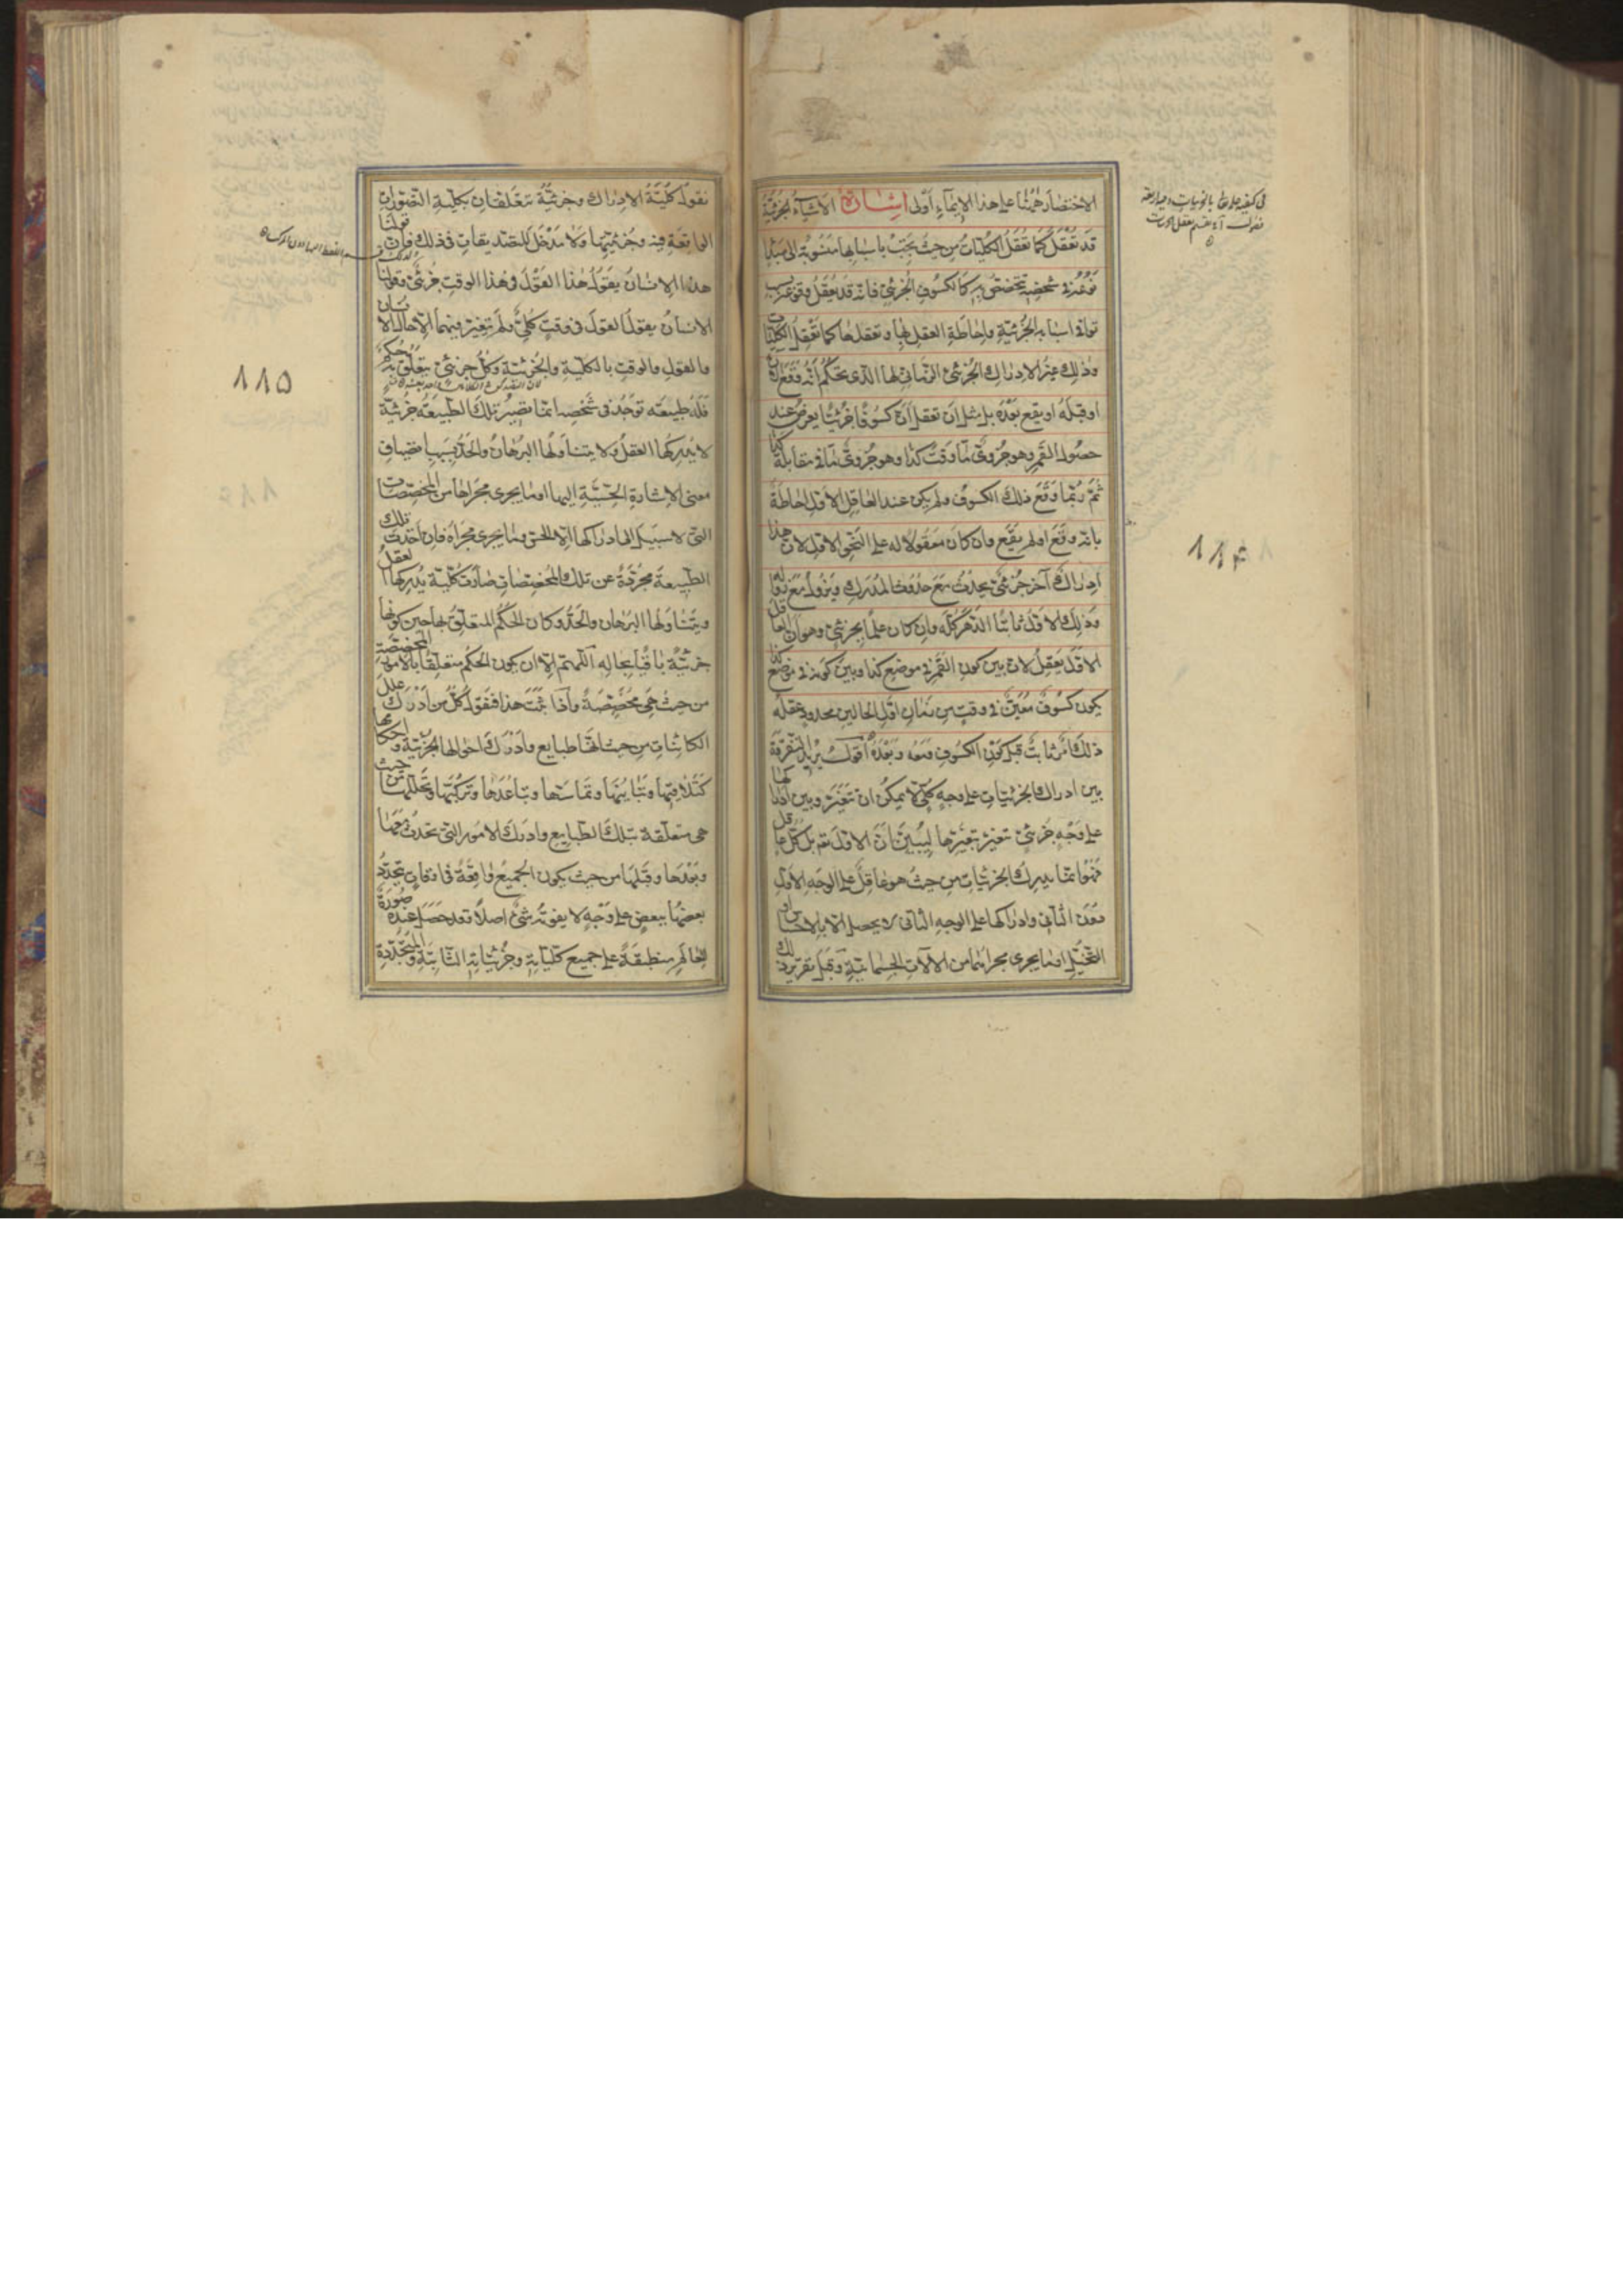 الاختصار هٰهُنا على هذا الإيماءِ أَولى اشارة الاشياء الجزئية
قد تُعْقَلُ كما تُعْقَلُ الكُلّياتُ من حيثُ تَجِبُ باسبابها منسوبة الى مبدإ
نَوْعُه في شخصِه تتخصّص به كالكسوفِ الجُزئيّ فانه قد يُعقَلُ وقوعه بسبب
توافي اسبابه الجُزئيّةِ واحاطةِ العقلِ بها وتعقّلها كما تُعْقَلُ الكليات
وذٰلك غيرُ الادراكِ الجُزئيّ الزماني لها الذي يحكُمُ انّه وَقَعَ الآن
او قبلَهُ او يقع بَعْدَهُ بل مثل ان تعقل انّ كسوفًا جُزئيًّا يعرِضُ عند
حصُولِ القمر وهو جُزئيٌّ ما وقتَ كذا وهو جُزئيٌّ ما في مقابلة كذا
ثمّ ربّما وقَعَ ذلك الكسوفُ ولم يكن عند العاقلِ الاوّلِ احاطةٌ
بانّه وقَعَ او لم يَقَع وان كان معقولًا له على النحو الاوّل لانّ هذا
ادراكٌ آخرُ جُزئيٌّ يحدُثُ مَعَ حدُوثِ المُدرَكِ ويزولُ مع زواله
وذلك الاوّلُ ثابتًا الدّهرَ كُلَّه وان كان علمًا بجزئيٍّ وهو ان العاقل
الاوّل يَعقِلُ لانّ بين كون القمر في موضعِ كذا وبين كونه في موضع كذا
يكون كسوفٌ مُعيَّنٌ في وقتٍ من زمانِ اوّلِ الحالين محدودٍ عقلُه
ذلك امرٌ ثابتٌ قبل كونِ الكسوفِ ومَعَه وبَعْدَهُ اقول يريد التفرقة
بين ادراك الجزئيات على وجهٍ كلّيٍّ لا يمكن ان تتغيّر وبين ادراكها
على وجهٍ جُزئيٍّ تتغيّر بتغيّرها ليُبيّن انّ الاوّل تعم بل كلّ عاقل
فهو انّما يدرك الجزئيات من حيث هو عاقلٌ على الوجه الاوّلِ
دُونَ الثاني وادراكها على الوجه الثاني لا يحصل الّا بالاحساس او
التخيّل او ما يجري مجراهما من الآلات الجسمانيّةِ وقبل تقرير ذلك
في كيفية علمه تعالى بالجزئيات
١١٤
نقولُ كُلّيّةُ الادراك وجزئيّتُه تتعلّقان بكلّية التصوّرات
الواقعةِ فيه وجُزئيّتِها ولا مدخَلَ للتصديقاتِ في ذلك فانّ قولنا
هذا الانسانُ يقولُ هذا القَوْلَ في هذا الوقتِ جُزئيٌّ وقولنا
الانسان يقول القول في وقتٍ كلّيٌّ ولم يتغيّر فيهما الا حال الانسان
والقول والوقت بالكلّية والجُزئيّة وكُلُّ جزئيٍّ يتعلّق به حكم
فلَهُ طبيعةٌ تُوجَدُ في شخصِه انّما تصيرُ تلك الطبيعةُ جُزئيّة
لا يُدركها العقلُ ولا يتناولُها البرهانُ والحدُّ بسبب انضياف
معنى الاشارة الحسّيّة اليها او ما يجري مجراها من المخصّصات
التي لا سبيل الى ادراكها الّا الحسّ وما يجري مجراه فان اخذت تلك
الطبيعةُ مجرّدةً عن تلك المخصّصاتِ صارت كُلّيّة يُدركها العقلُ
ويتناولُها البرهان والحدُّ وكان الحكمُ المتعلّقُ بها حين كونها
جزئيّةً باقيًا بحاله اللّهمّ الّا ان يكون الحكم متعلّقًا بالامور المخصّصة
من حيث هي مخصّصةٌ واذا ثبَتَ هذا فنقولُ كلُّ من ادرَكَ علل
الكائنات من حيث انّها طبايع وادرك احوالها الجزئيّة واحكامها
كتلاقيها وتباينها وتماسّها وتباعُدها وتركّبها وتحلّلها من حيث
هي متعلّقة بتلك الطبايع وادرك الامور التي تحدُث معها
وبعدها وقبلها من حيث يكون الجميعُ واقعةً في اوقاتٍ يتحدّدُ
بعضُها ببعضٍ على وجهٍ لا يفوته شيءٌ اصلًا فقد حصل عنده صورة
العالم منطبقةً على جميع كلّيّاته وجُزئيّاته الثابتة والمتجدّدة
١١٥